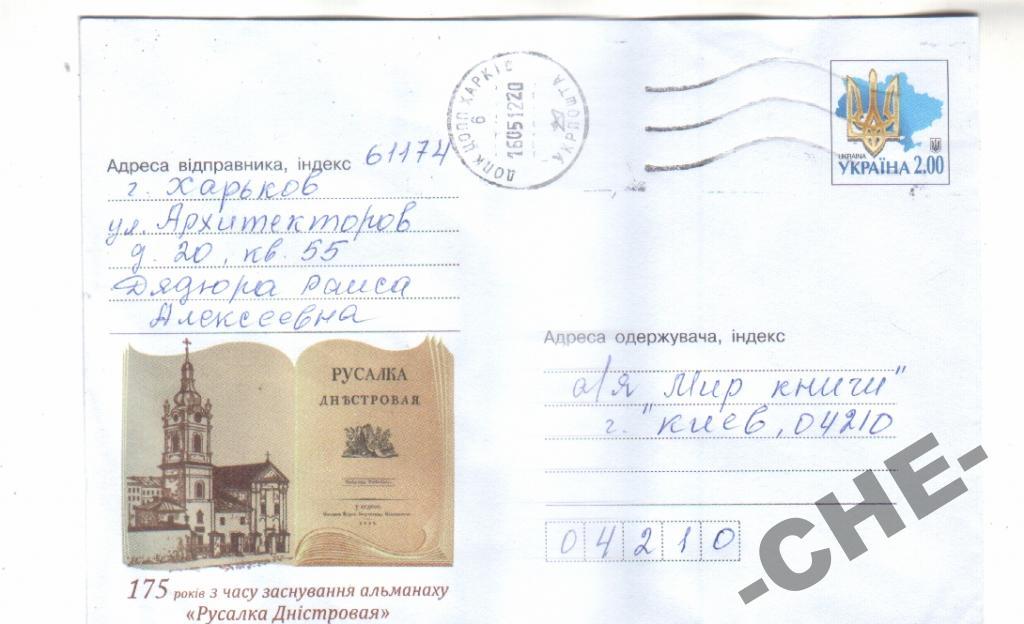 ДОПК ЦОПП ХАРКІВ
6
16051220
УКРПОШТА
UKRAINA
УКРАЇНА 2.00
Адреса відправника, індекс 61174
г. Харьков
ул. Архитекторов
д. 20, кв. 55
Дядюра Раиса
Алексеевна
РУСАЛКА
ДНѢСТРОВАЯ
175 років з часу заснування альманаху
«Русалка Дністровая»
Адреса одержувача, індекс
а/я "Мир книги"
г. Киев, 04210
04210
-CHE-